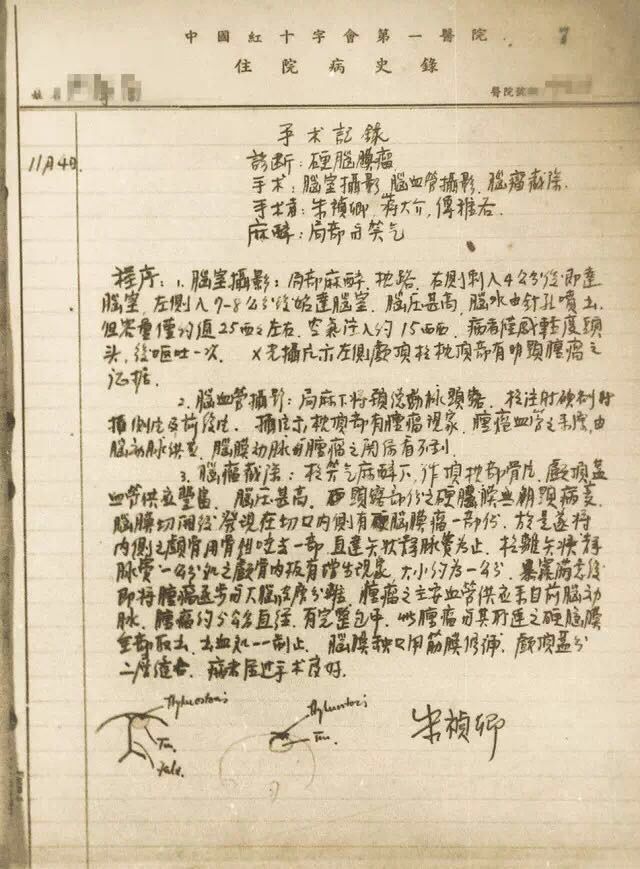 中國紅十字會第一醫院 7
住院病史錄
姓名
醫院號
手术記錄
11月4日.
診断:硬腦膜瘤
手术:腦室攝影,腦血管攝影,腦瘤截除.
手术者:朱禎卿,蔣大介,傅雅各.
麻醉:局部与笑气
程序:1.腦室攝影:局部麻醉,枕路.右側刺入4公分後即達
腦室,左側入7-8公分後始達腦室,腦压甚高,腦水由針孔噴出,
但容量僅約過25西西左右,空氣注入約15西西,病者陡感輕度頭
痛,後嘔吐一次. X光攝片示左側顱頂枕頂部有明顯腫瘤之
証据.
2.腦血管攝影:局麻下將頸總動脉,注射碘剂时
摄側片及前後片.攝片示枕頂部有腫瘤現象,腫瘤血管之来源,由
腦動脉供应,腦膜動脉与腫瘤之関係看不到.
3.腦瘤截除:於笑气麻醉下,作頂枕部骨片,顱頂蓋
血管供应豐富,腦压甚高,部份之硬腦膜無明顯病变,
腦膜切開後發現在切口內側有硬腦膜瘤一部份,於是遂将
內側之顱骨用骨钳咬去一部,直達矢狀静脉竇为止,於離矢状静
脉竇一公分处之顱骨內板有增生现象,大小约为一公分.暴露滿意後
即將腫瘤逐步与大腦皮層分離,腫瘤之主要血管供应来自前腦动
脉,腫瘤约5公分直径,有完整包膜,此腫瘤与其附連之硬腦膜
全部取出,出血处一一制止,腦膜缺口用筋膜修補,顱頂蓋分
二層缝合.病者經过手术良好.
Hyperostosis
Tu.
falx.
Hyperostosis
Tu.
朱禎卿